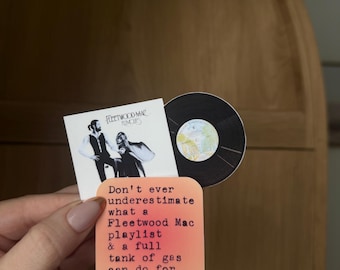 FLEETWOOD MAC
RUMOURS
Don't ever
underestimate
what a
Fleetwood Mac
playlist
& a full
tank of gas
can do for